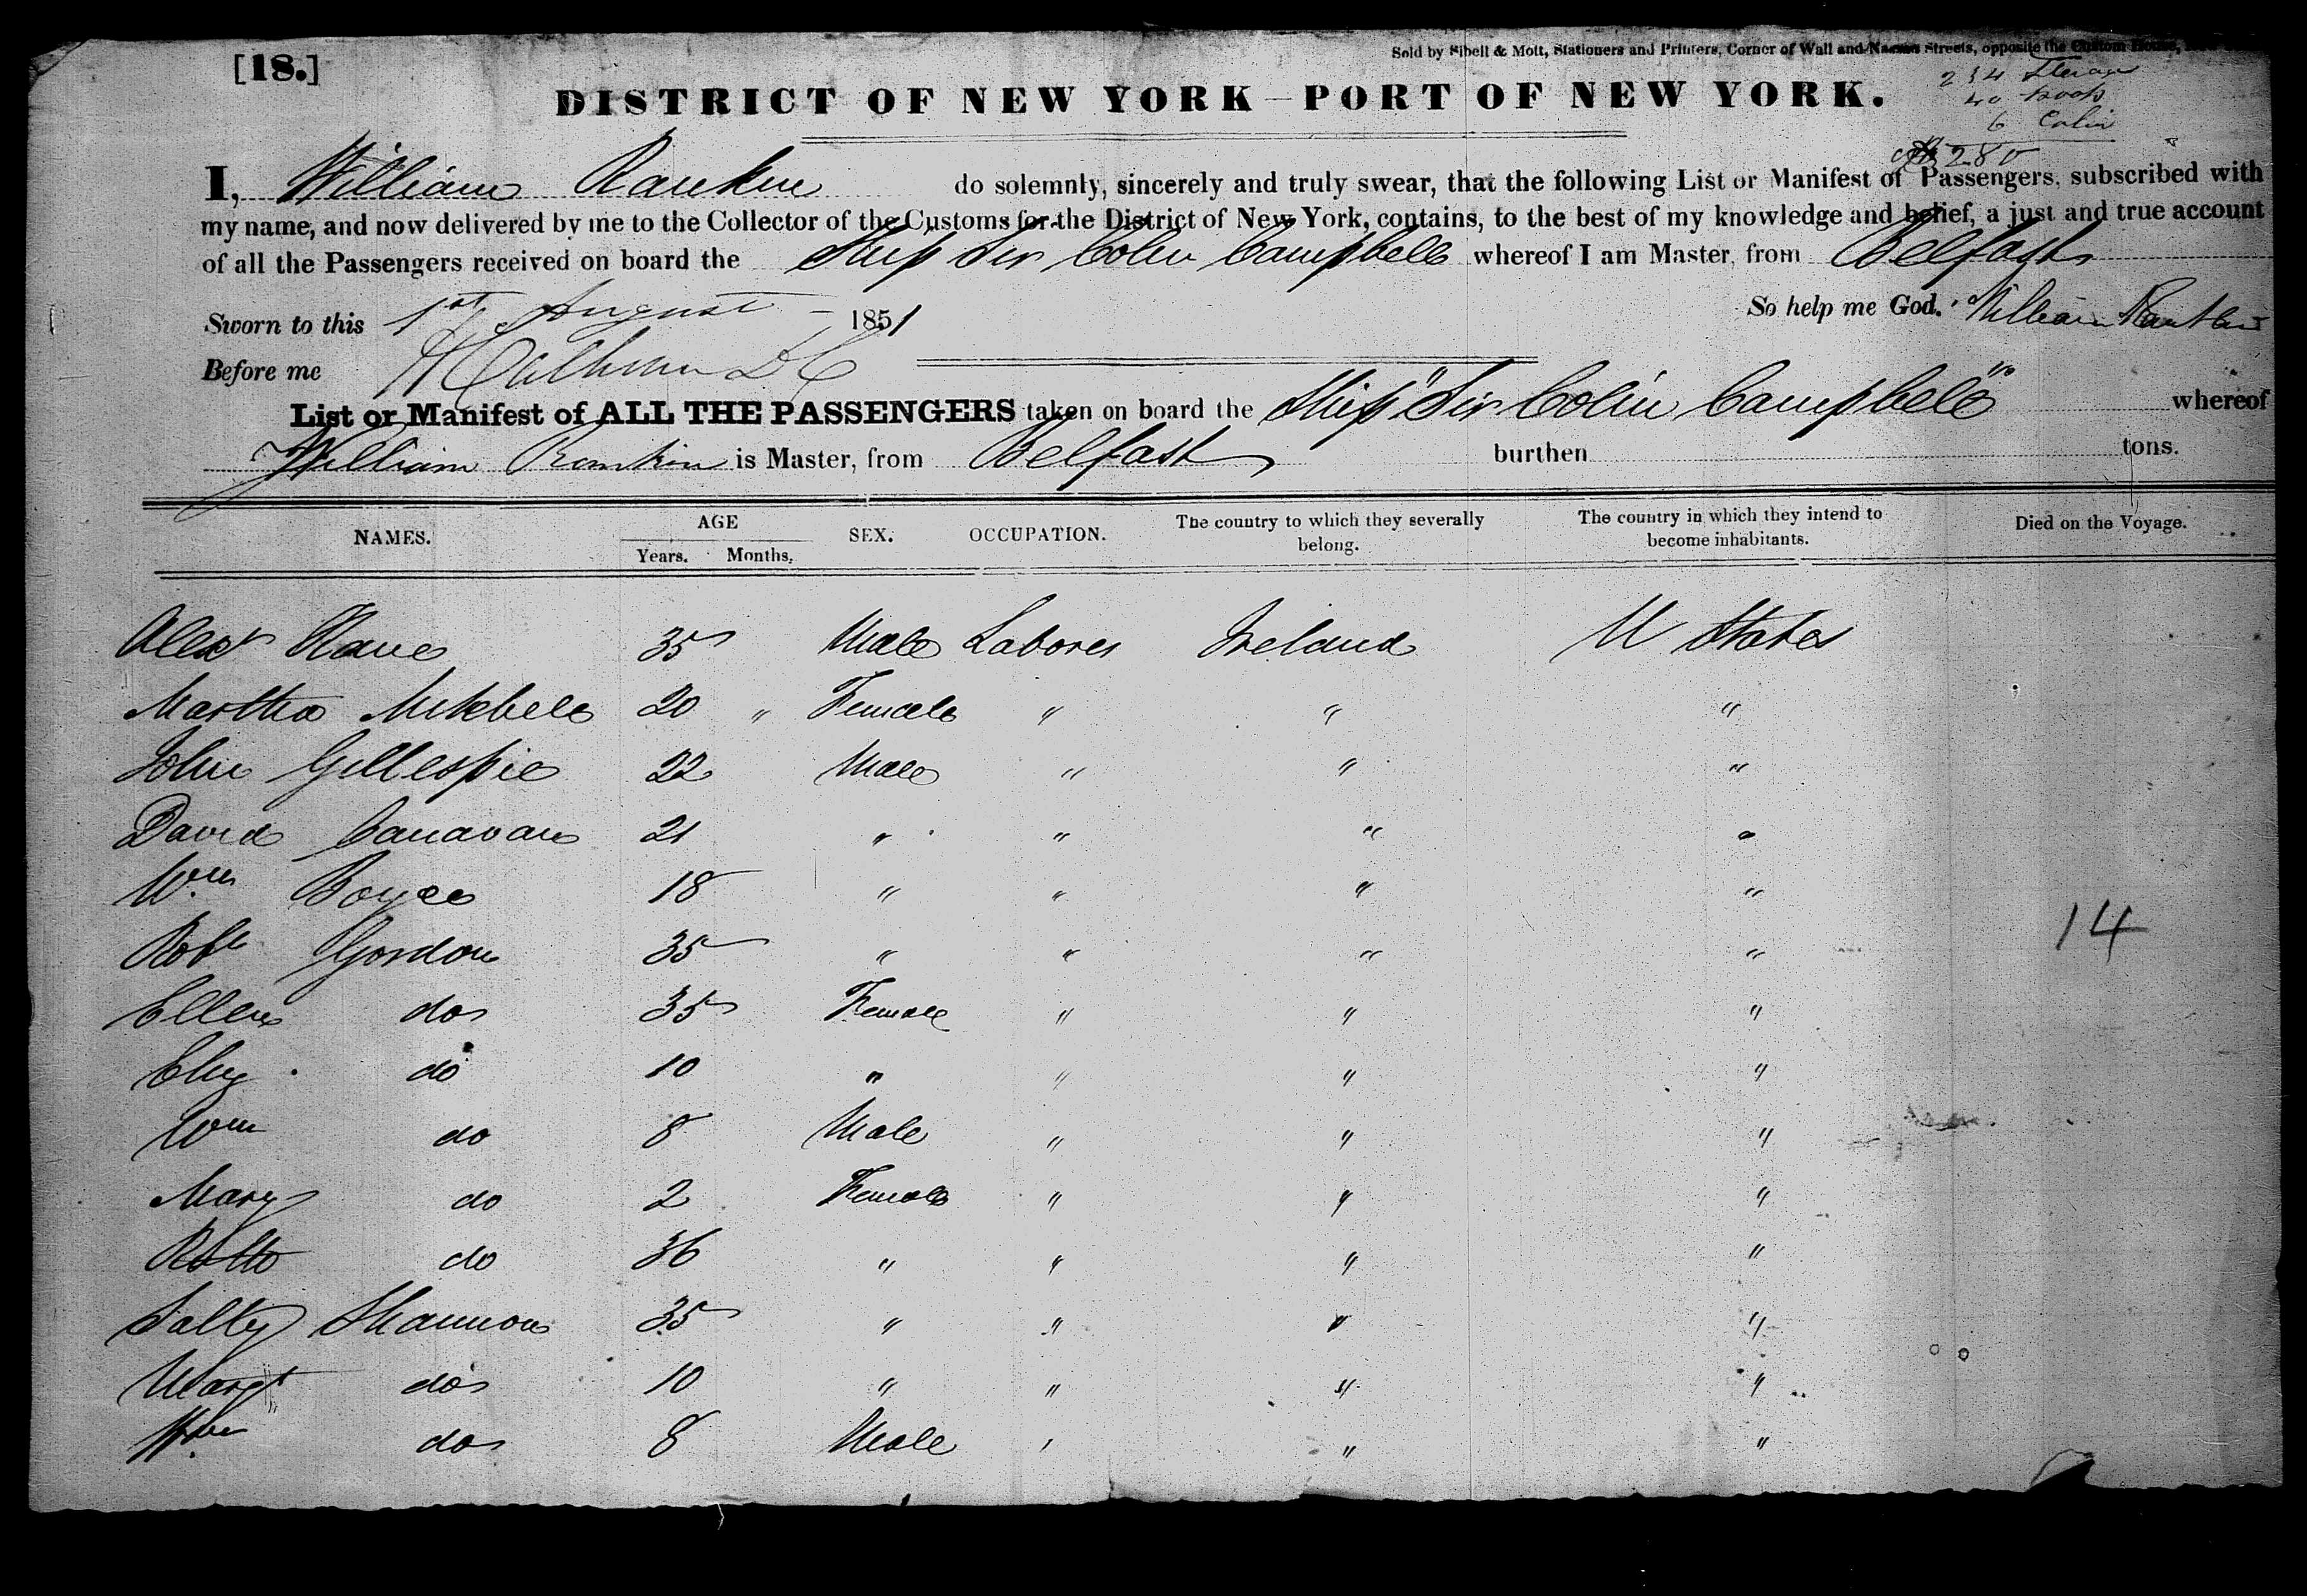 [18.]
Sold by Sibell & Mott, Stationers and Printers, Corner of Wall and Nassau Streets, opposite the Custom House,
DISTRICT OF NEW YORK—PORT OF NEW YORK.
234
40
6 Cabin
280
I, William Rankin do solemnly, sincerely and truly swear, that the following List or Manifest of Passengers, subscribed with
my name, and now delivered by me to the Collector of the Customs for the District of New York, contains, to the best of my knowledge and belief, a just and true account
of all the Passengers received on board the Ship Sir Colin Campbell whereof I am Master, from Belfast
Sworn to this 1st August 1851 So help me God. William Rankin
Before me
List or Manifest of ALL THE PASSENGERS taken on board the Ship "Sir Colin Campbell" whereof
William Rankin is Master, from Belfast burthen tons.
NAMES. AGE Years. Months. SEX. OCCUPATION. The country to which they severally belong. The country in which they intend to become inhabitants. Died on the Voyage.
Alexr 35 Male Laborer Ireland U States
Martha 20 " Female " " "
John Gillespie 22 Male " " "
David Canavan 21 " " " "
Wm Boyce 18 " " " "
Robt Gordon 35 " " " "
14
Ellen do 35 Female " " "
do 10 " " " "
Wm do 8 Male " " "
Mary do 2 Female " " "
do 36 " " " "
Sally Shannon 35 " " " "
Margt do 10 " " " "
Wm do 8 Male " " "